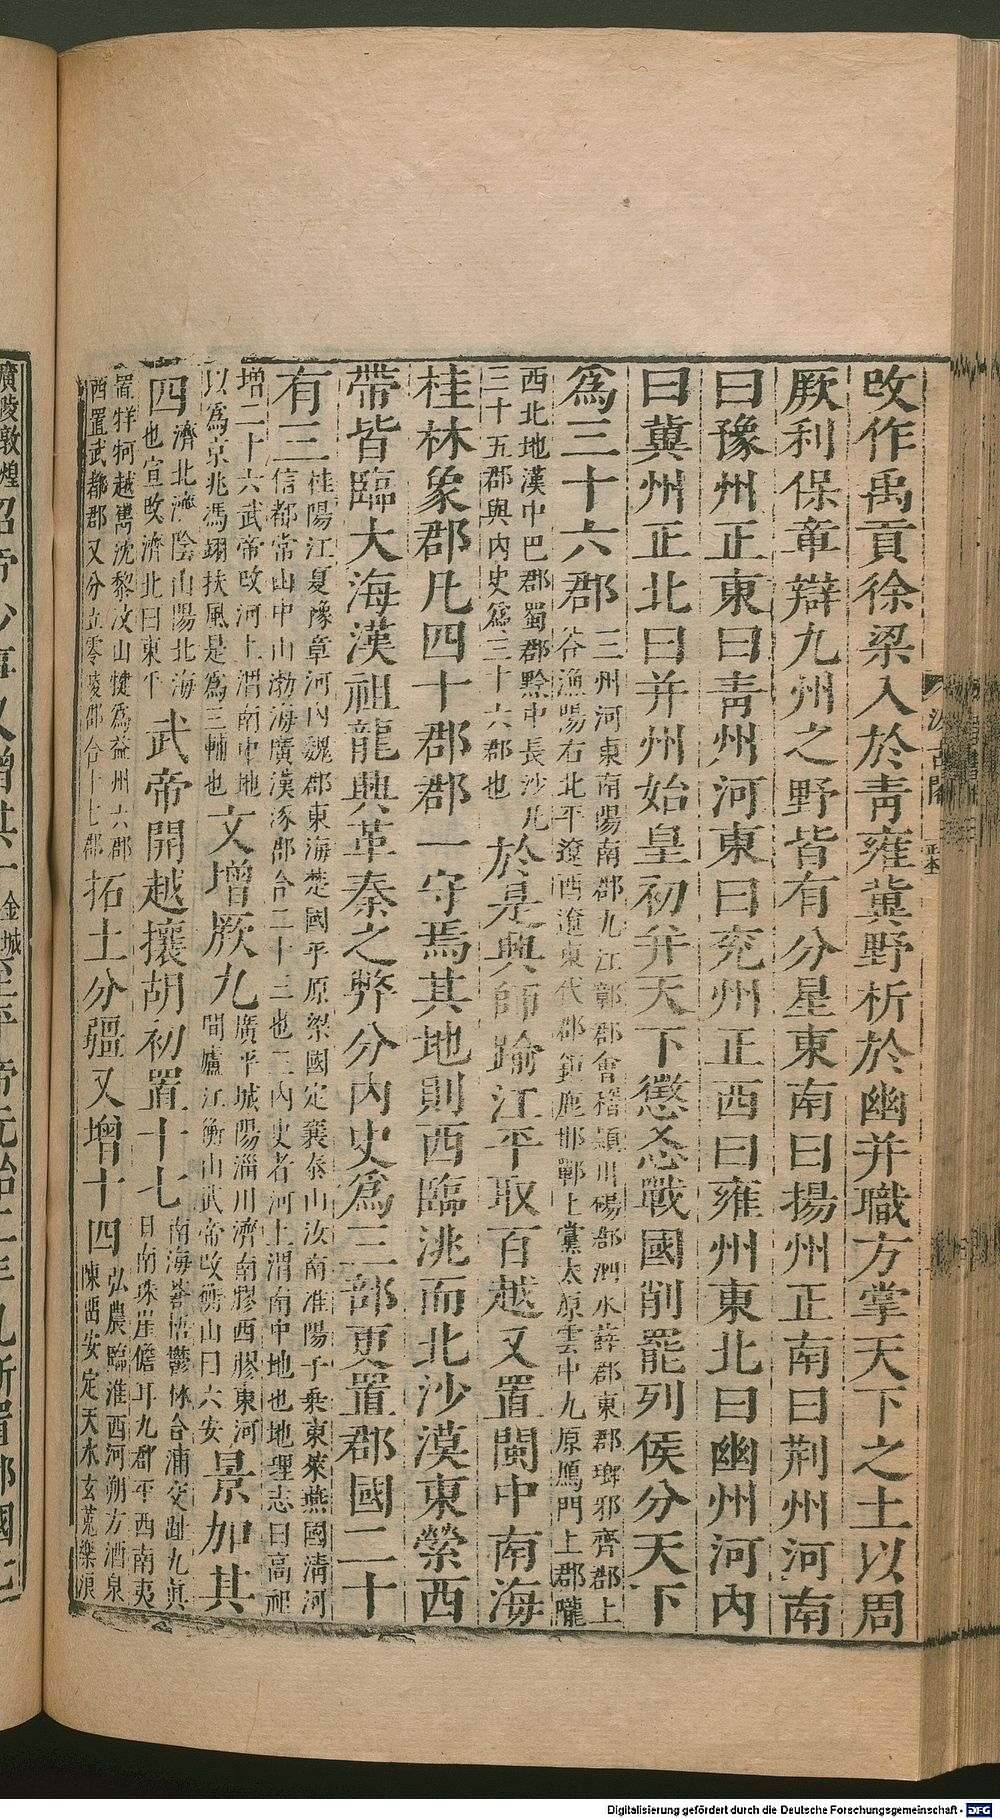 改作禹貢徐梁入於靑雍冀野析於幽并職方掌天下之土以周
厥利保章辯九州之野皆有分星東南曰揚州正南曰荆州河南
曰豫州正東曰靑州河東曰兖州正西曰雍州東北曰幽州河内
曰冀州正北曰并州始皇初并天下懲忿戰國削罷列侯分天下
爲三十六郡
三川河東南陽南郡九江鄣郡會稽潁川碭郡泗水薛郡東郡瑯邪齊郡上
谷漁陽右北平遼西遼東代郡鉅鹿邯鄲上黨太原雲中九原鴈門上郡隴
西北地漢中巴郡蜀郡黔中長沙凡
三十五郡與内史爲三十六郡也
於是興師踰江平取百越又置閩中南海
桂林象郡凡四十郡郡一守焉其地則西臨洮而北沙漠東縈西
帶皆臨大海漢祖龍興革秦之弊分内史爲三部更置郡國二十
有三
桂陽江夏豫章河内魏郡東海楚國平原梁國定襄泰山汝南淮陽千乗東萊燕國清河
信都常山中山渤海廣漢涿郡合二十三也二内史者河上渭南中地也地理志曰高祖
增二十六武帝改河上渭南中地
以爲京兆馮翊扶風是爲三輔也
文增厥九
廣平城陽淄川濟南膠西膠東河
間廬江衡山武帝改衡山曰六安
景加其
四
濟北濟陰山陽北海
也宣改濟北曰東平
武帝開越攘胡初置十七
南海蒼梧鬱林合浦交趾九眞
日南珠崖儋耳九郡平西南夷
置牂牁越嶲沈黎汶山犍爲益州六郡
西置武都郡又分立零陵郡合十七郡
拓土分疆又增十四
弘農臨淮西河朔方酒泉
陳畱安定天水玄菟樂浪
廣陵敦煌
昭帝少事又增其一
金城
汲古閣
正本
Digitalisierung gefördert durch die Deutsche Forschungsgemeinschaft - DFG